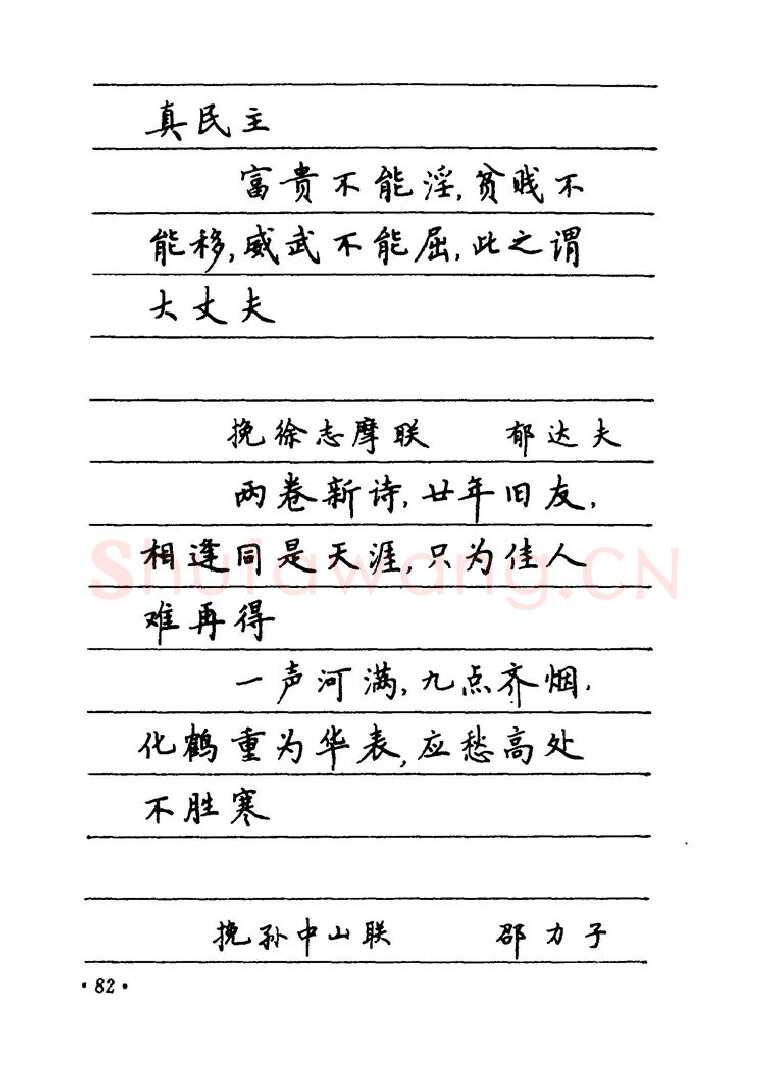 真民主
富贵不能淫,贫贱不
能移,威武不能屈,此之谓
大丈夫
挽徐志摩联 郁达夫
两卷新诗,廿年旧友,
相逢同是天涯,只为佳人
难再得
一声河满,九点齐烟,
化鹤重为华表,应愁高处
不胜寒
挽孙中山联 邵力子
·82·
shufawang.CN